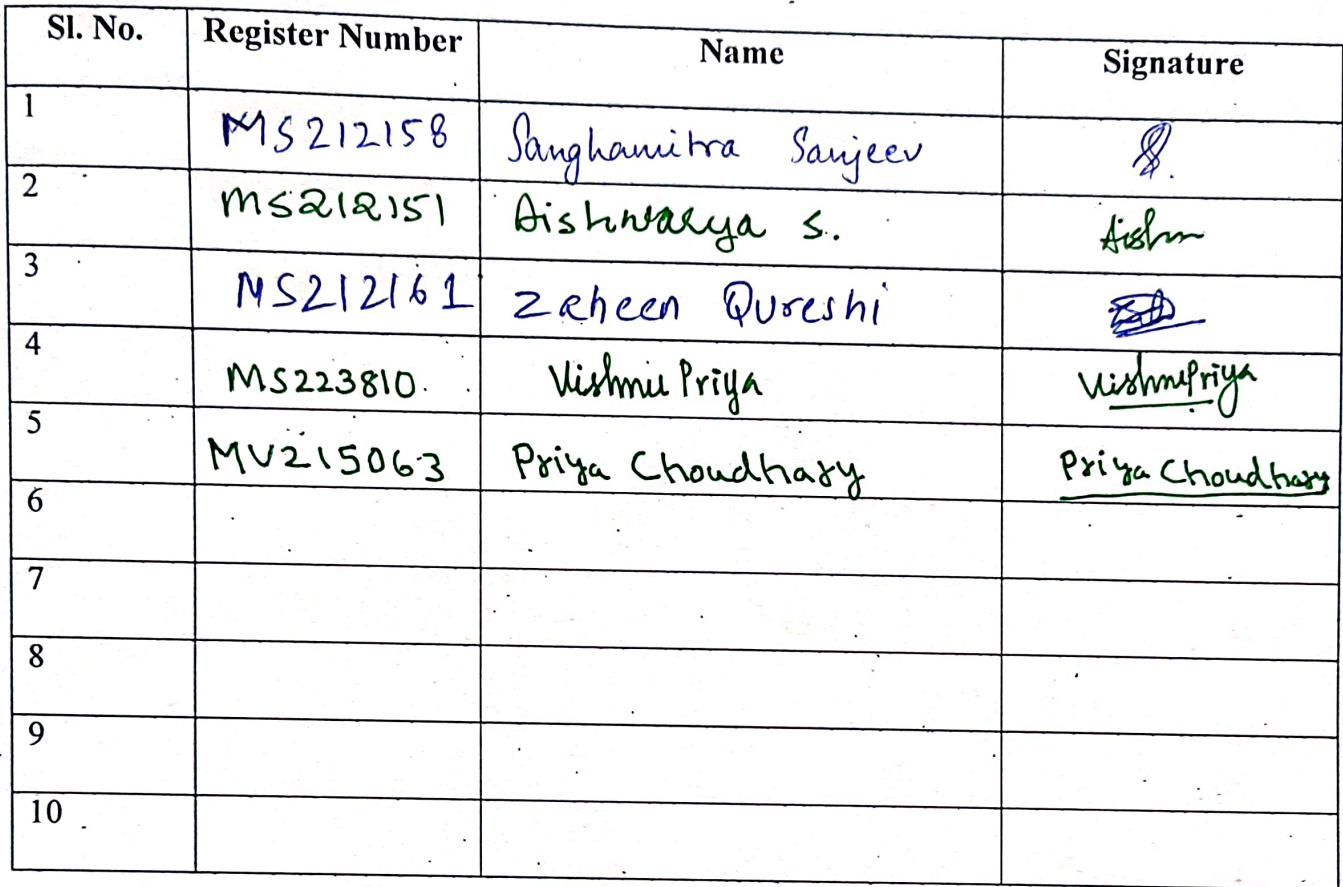 Sl. No. Register Number Name Signature
1 MS212158 Sanghamitra Sanjeev
2 MS212151 Aishwarya S. Aishw
3 MS212161 Zaheen Qureshi
4 MS223810. Vishnu Priya VishnuPriya
5 MV215063 Priya Choudhary Priya Choudhary
6
7
8
9
10